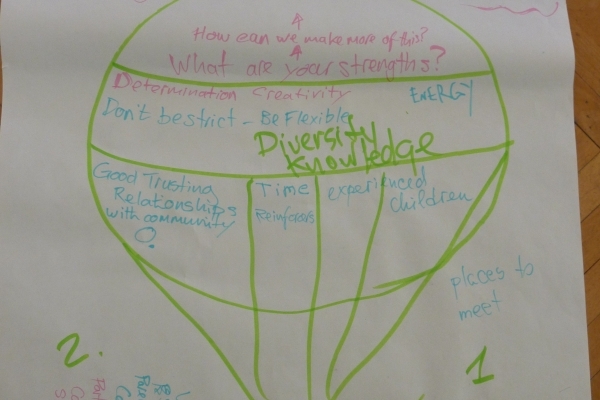 How can we make more of this?
What are your strengths?
Determination Creativity ENERGY
Don't be strict - Be Flexible
Diversity
Knowledge
Good Trusting
Relationships
with community
Time
experienced
children
places to
meet
2.
1